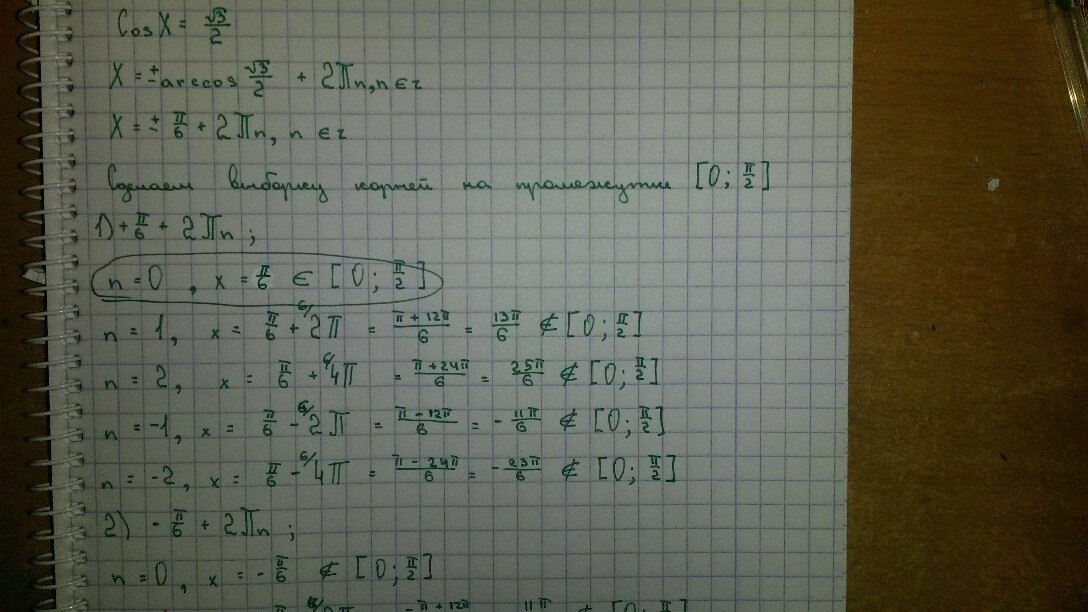 Cos X = √3/2
X = ± arccos √3/2 + 2πn, n ∈ z
X = ± π/6 + 2πn, n ∈ z
Сделаем выборку корней на промежутке [0; π/2]
1) + π/6 + 2πn;
n = 0, x = π/6 ∈ [0; π/2]
n = 1, x = π/6 + 6/ 2π = π + 12π/6 = 13π/6 ∉ [0; π/2]
n = 2, x = π/6 + 6/ 4π = π + 24π/6 = 25π/6 ∉ [0; π/2]
n = -1, x = π/6 - 6/ 2π = π - 12π/6 = - 11π/6 ∉ [0; π/2]
n = -2, x = π/6 - 6/ 4π = π - 24π/6 = - 23π/6 ∉ [0; π/2]
2) - π/6 + 2πn;
n = 0, x = - π/6 ∉ [0; π/2]